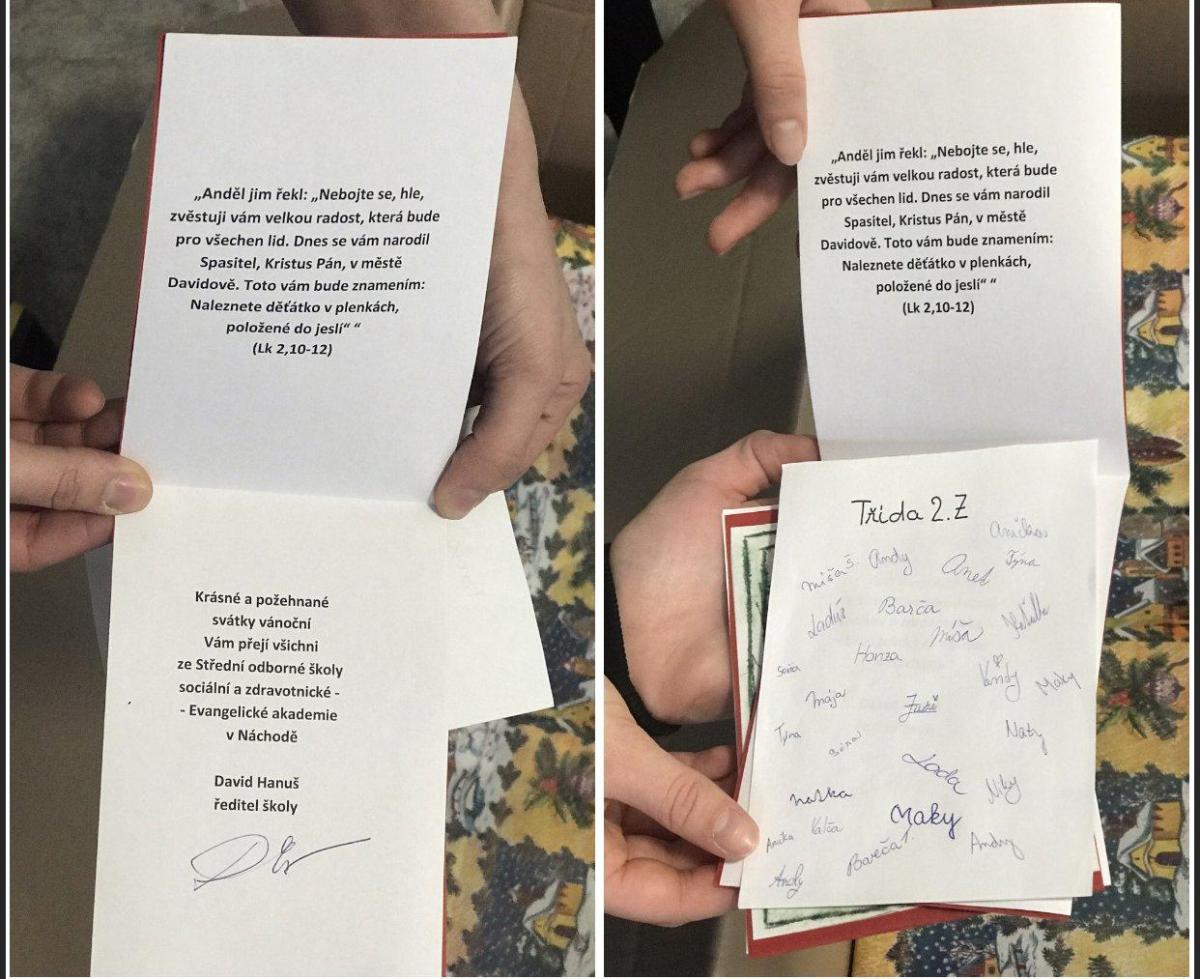 „Anděl jim řekl: „Nebojte se, hle,
zvěstuji vám velkou radost, která bude
pro všechen lid. Dnes se vám narodil
Spasitel, Kristus Pán, v městě
Davidově. Toto vám bude znamením:
Naleznete děťátko v plenkách,
položené do jeslí“ “
(Lk 2,10-12)
Krásné a požehnané
svátky vánoční
Vám přejí všichni
ze Střední odborné školy
sociální a zdravotnické -
- Evangelické akademie
v Náchodě
David Hanuš
ředitel školy
„Anděl jim řekl: „Nebojte se, hle,
zvěstuji vám velkou radost, která bude
pro všechen lid. Dnes se vám narodil
Spasitel, Kristus Pán, v městě
Davidově. Toto vám bude znamením:
Naleznete děťátko v plenkách,
položené do jeslí“ “
(Lk 2,10-12)
Třída 2.Z
Míša Š. Andy Týna
Barča
Míša
Honza
Vendy Maky
Mája
Týna
Naty
Lada
Niky
Maky
Anička Valča
Barča 1. Andy
Andy